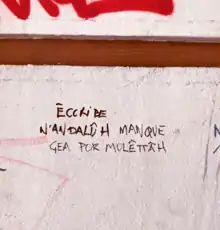 ÊCCRIBE
N'ANDALÛH MANQUE
ÇEA POR MOLÊTTÁH